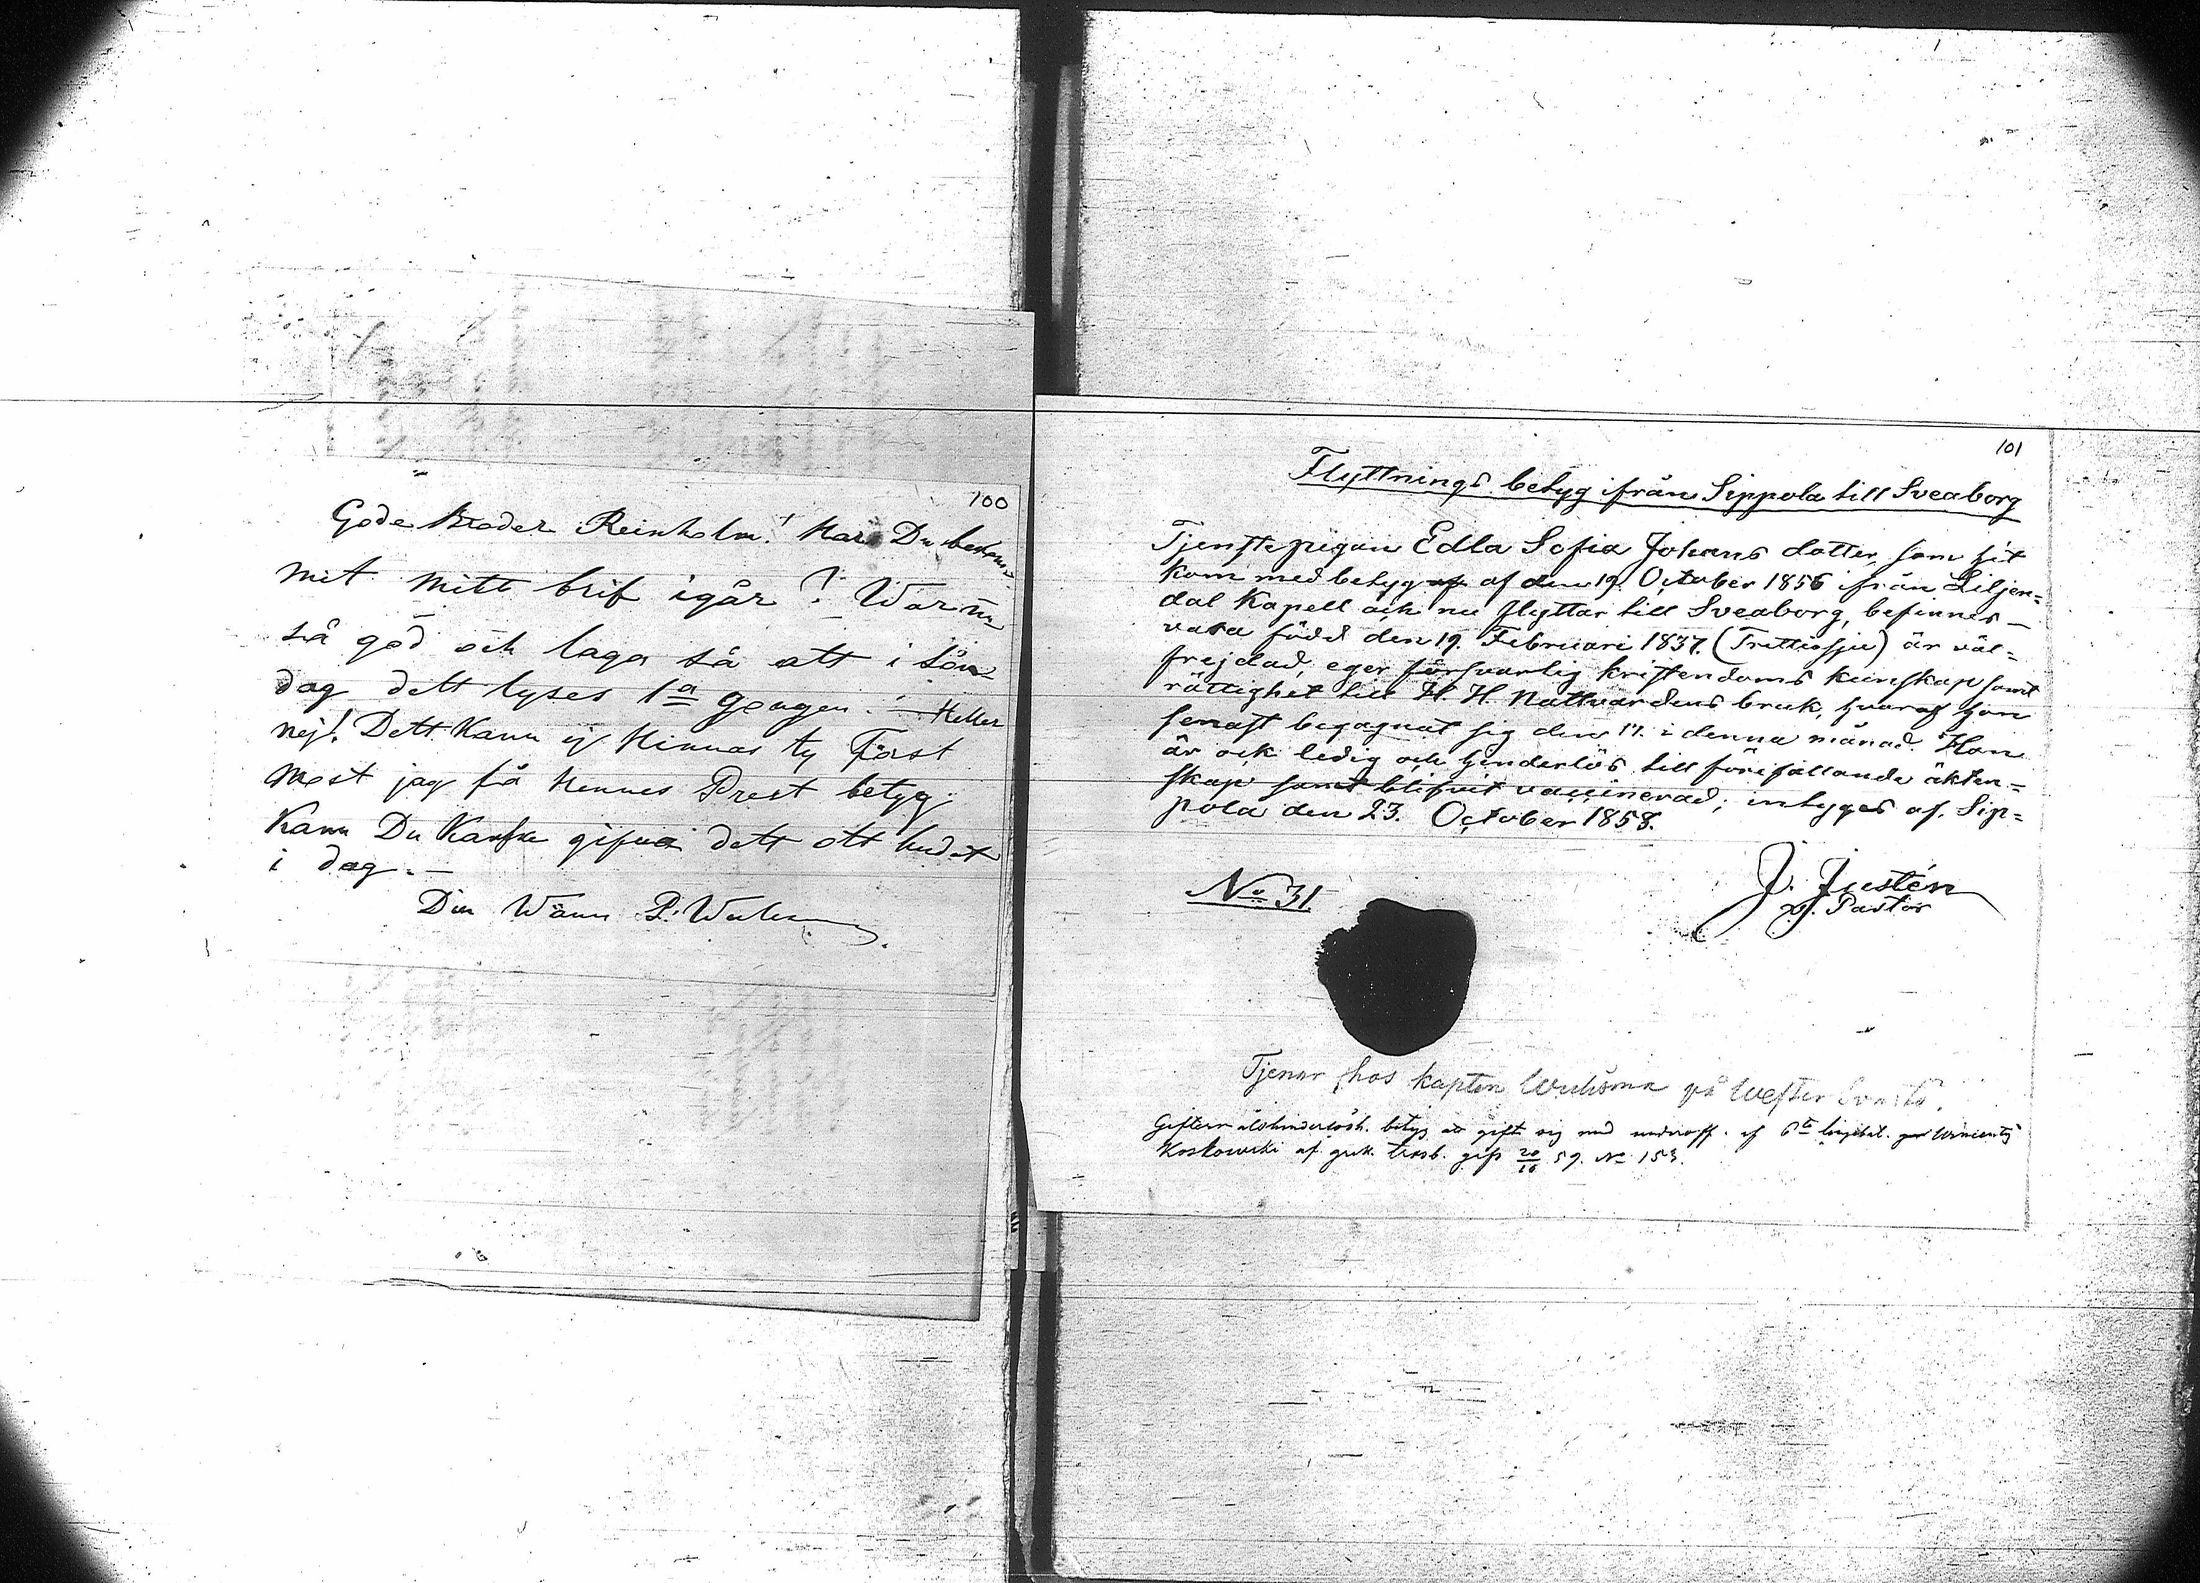 100
Gode Broder Reinholm! Har Du bekom-
mit mitt brif igår? War nu
så god och laga så att i sön
dag dett lyses 1a gongen. – Heller
nej! Dett kann ej hinnas ty Först
most jag få hennes Prest betyg
Kann Du Kanske gifva dett ott budet
i dag. –
Din Wänn P.
101
Flyttnings betyg ifrån Sippola till Sveaborg
Tjenstepigan Edla Sofia Johans dotter, som hit
kom med betyg af den 19. October 1856 ifrån Liljen=
dal Kapell och nu flyttar till Sveaborg, befinnes –
vara född den 19. Februari 1837. (Trettiosju) är väl=
frejdad, eger försvarlig kristendoms kunskap samt
rättighet till H. H. Nattvardens bruk, hvaraf hon
senast begagnat sig den 17. i denna månad. Hon
är ock ledig och hinderlös till förefallande äkten=
skap samt blifvit vaccinerad; intyges af. Sip=
pola den 23. October 1858.
J. Justén
v. Pastor
No 31
Tjenar hos kapten på Wester Svartö.
Giftern. betyg att gifta sig med underoff. af 6te
Koskowski af grek. trosb. gifs 20/10 59. No 153.